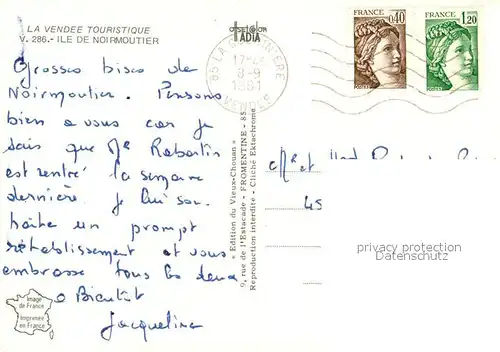 LA VENDEE TOURISTIQUE
V. 286.- ILE DE NOIRMOUTIER
Grosses bises de
Noirmoutier. Pensons
bien a vous car je
sais que Mr Rabartin
est rentré la semaine
dernière. Je lui sou-
haite un prompt
rétablissement et vous
embrasse tous les deux
a Bientôt
Jacqueline
Image
de France
Imprimée
en France
ADIA
85 LA
17H45
8-9
1981
VENDEE
« Edition du Vieux-Chouan »
9, rue de l'Estacade - FROMENTINE - 85
Reproduction interdite - Cliché Ektachrome
FRANCE
0,40
POSTES
FRANCE
1,20
POSTES
Mr et
45
privacy protection
Datenschutz